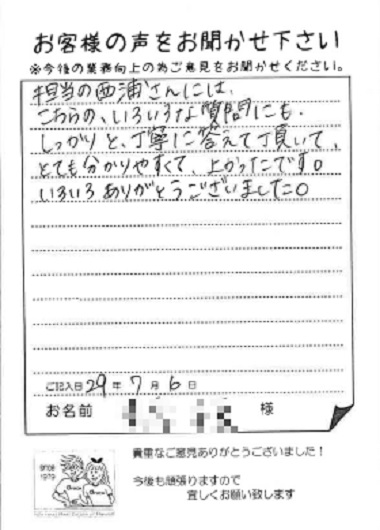 お客様の声をお聞かせ下さい
※今後の業務向上の為ご意見をお聞かせください。
担当の西浦さんには、
こちらの、いろいろな質問にも、
しっかりと、丁寧に答えて丁頂いて、
とても分かりやすくて、よかったです。
いろいろありがとうございました。
ご記入日 29年 7月 6日
お名前 様
since
1979
貴重なご意見ありがとうございました!
今後も頑張りますので
宜しくお願い致します